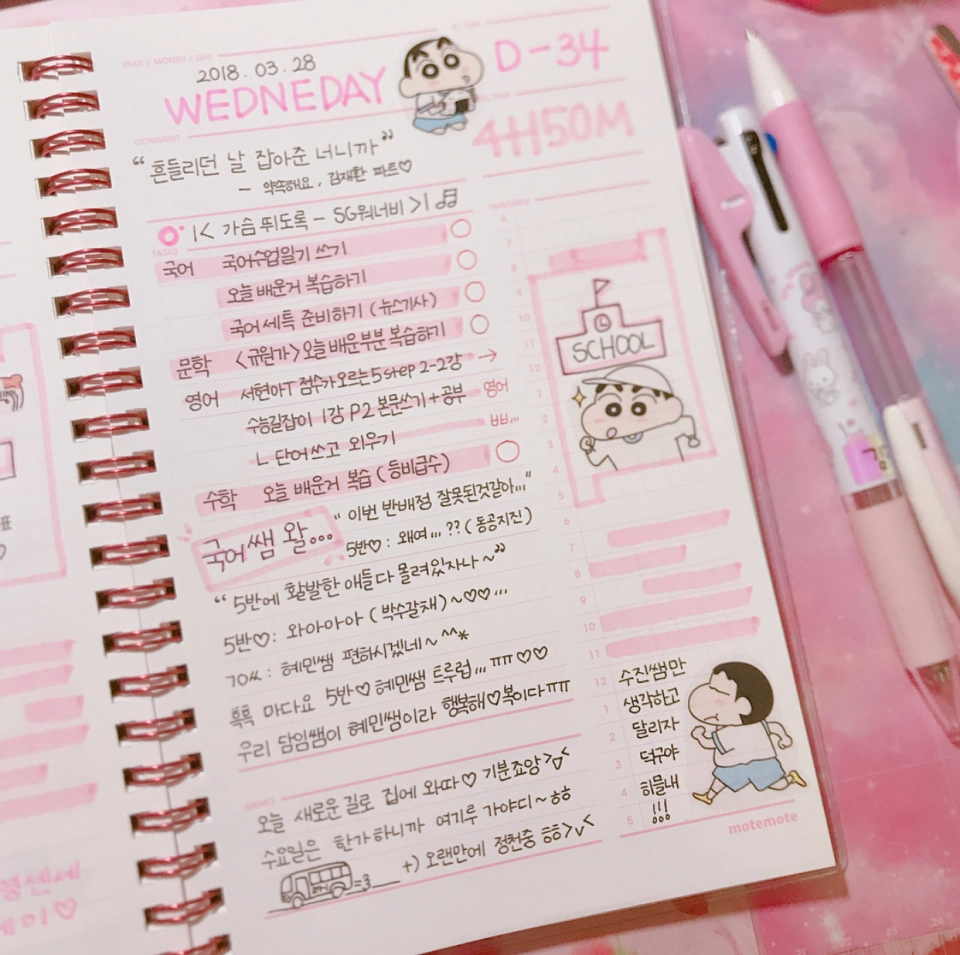 YEAR / MONTH / DAY
2018. 03. 28
WEDNEDAY
D-34
COMMENT
4H50M
“흔들리던 날 잡아준 너니까”
- 약속해요, 김재환 파트♡
|< 가슴 뛰도록 - SG워너비 >|
TASKS
국어 국어수업일기 쓰기
오늘 배운거 복습하기
국어 세특 준비하기 (뉴스기사)
문학 <규원가> 오늘 배운부분 복습하기
영어 서현아T 점수가오르는 5 step 2-2강 →
수능길잡이 1강 P2 본문쓰기+공부 영어
ㄴ 단어쓰고 외우기 ㅂㅂ...
수학 오늘 배운거 복습 (등비급수)
국어쌤 왈...
“이번 반배정 잘못된것같아...”
5반♡: 왜여...?? (동공지진)
“5반에 활발한 애들 다 몰려있자나~”
5반♡: 와아아아 (박수갈채)~♡♡...
혜민쌤 편하시겠네~^^*
흑흑 마다요 5반♡ 혜민쌤 트루럽...ㅠㅠ♡♡
우리 담임쌤이 혜민쌤이라 행복해♡복이다ㅠㅠ
MEMO
오늘 새로운 길로 집에 와따♡ 기분죠앙>ㅁ<
수요일은 한가하니까 여기루 가야디~ㅎㅎ
=3
+) 오랜만에 정천중 ㅎㅎ>v<
TIMETABLE
6
7
8
9
10
11
12
1
2
3
4
5
SCHOOL
6
7
8
9
10
11
12
1
2
3
4
5
수진쌤만
생각하고
달리자
덕구야
히믈내
!!!
motemote